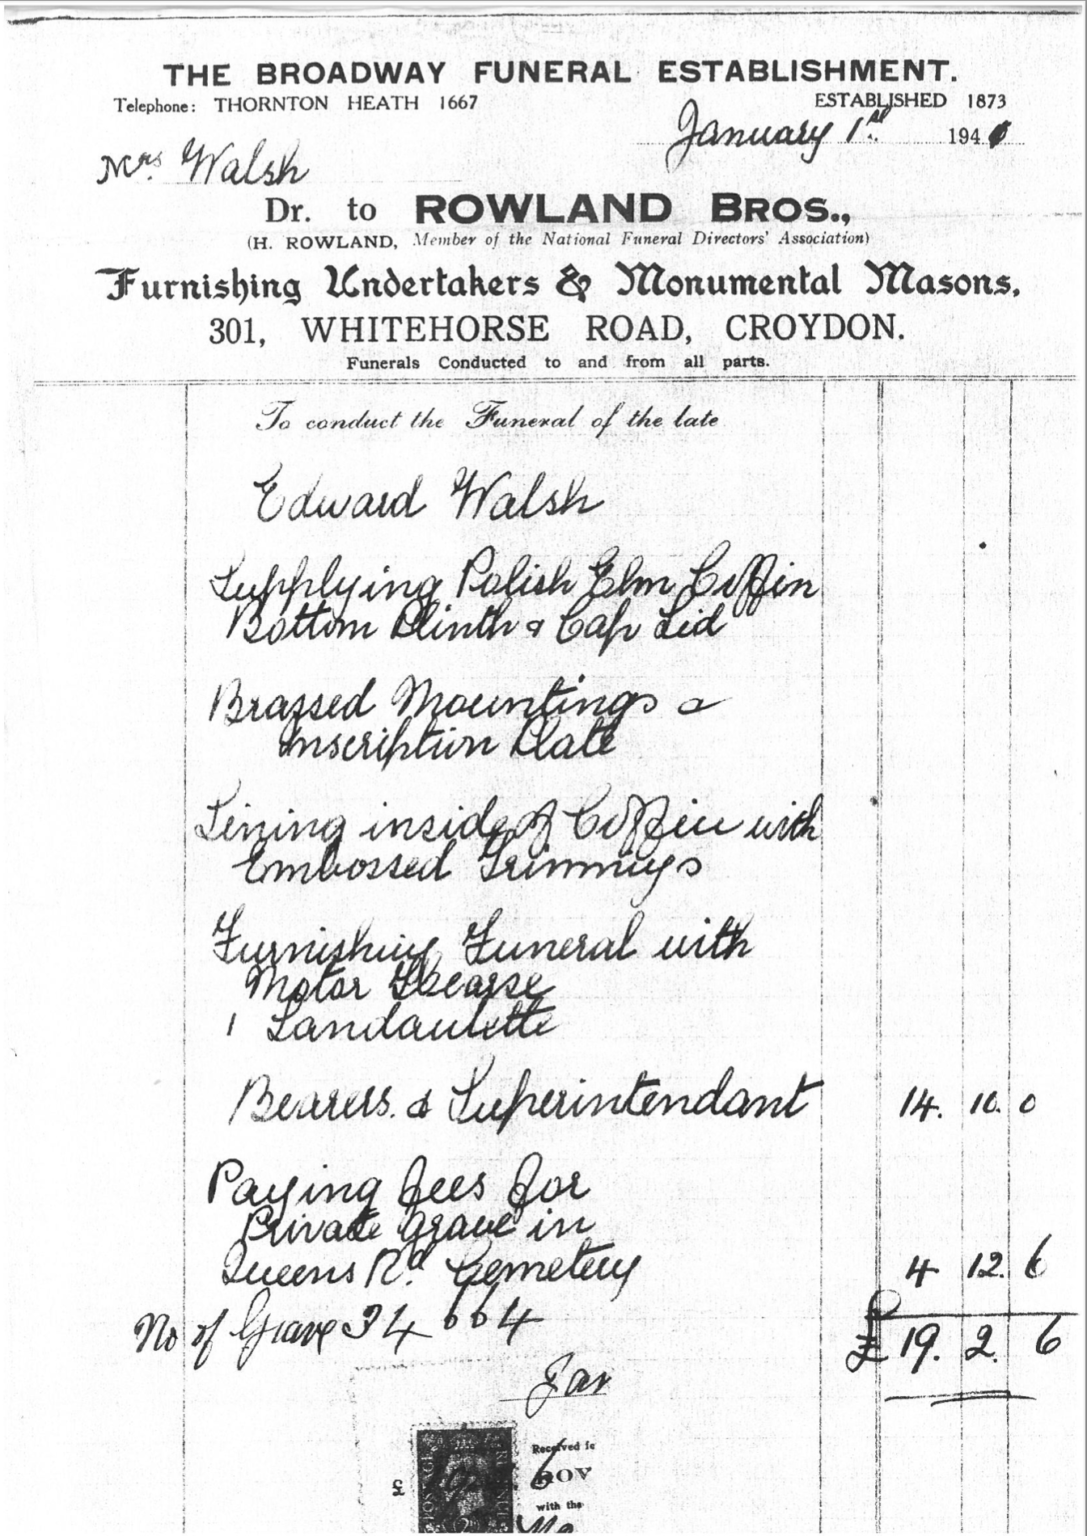 THE BROADWAY FUNERAL ESTABLISHMENT.
Telephone: THORNTON HEATH 1667 ESTABLISHED 1873
January 1st 194
Mrs. Walsh
Dr. to ROWLAND BROS.,
(H. ROWLAND, Member of the National Funeral Directors' Association)
Furnishing Undertakers & Monumental Masons,
301, WHITEHORSE ROAD, CROYDON.
Funerals Conducted to and from all parts.
To conduct the Funeral of the late
Edward Walsh
Supplying Polish Elm Coffin
Bottom Plinth & Cap Lid
Brassed Mountings &
Inscription Plate
Lining inside of Coffin with
Embossed Trimmings
Furnishing Funeral with
Motor Hearse
1 Landaulette
Bearers. & Superintendant 14. 10. 0
Paying fees for
Private grave in
Queens Rd. Cemetery 4 12. 6
No of Grave 34664 £ 19. 2. 6
Jan
POSTAGE
Received
£ 6 ROW
with the